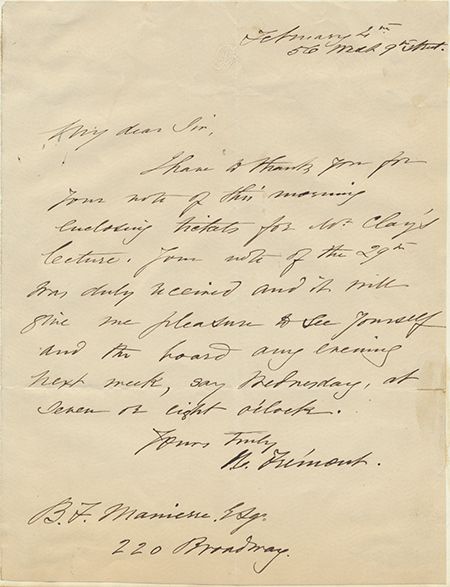 February 4th
56 West 9th Street.
My dear Sir,
I have to thank you for
your note of this morning
enclosing tickets for Mr Clay's
lecture. Your note of the 29th
was duly received and it will
give me pleasure to see yourself
and the board any evening
next week, say Wednesday, at
seven or eight o'clock.
Yours truly
Frémont.
B. F. Manierre, Esqr.
220 Broadway.